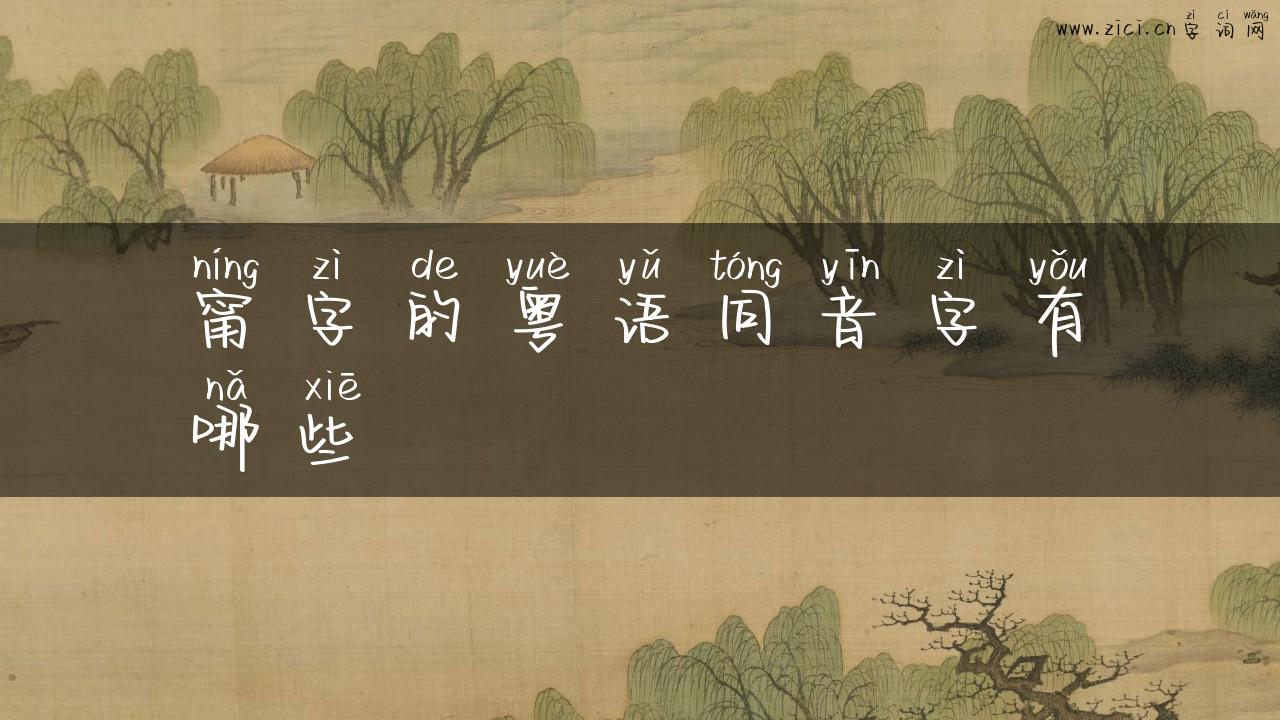 zì cí wǎng
www.zici.cn 字 词 网
níng zì de yuè yǔ tóng yīn zì yǒu
甯 字 的 粤 语 同 音 字 有
nǎ xiē
哪 些